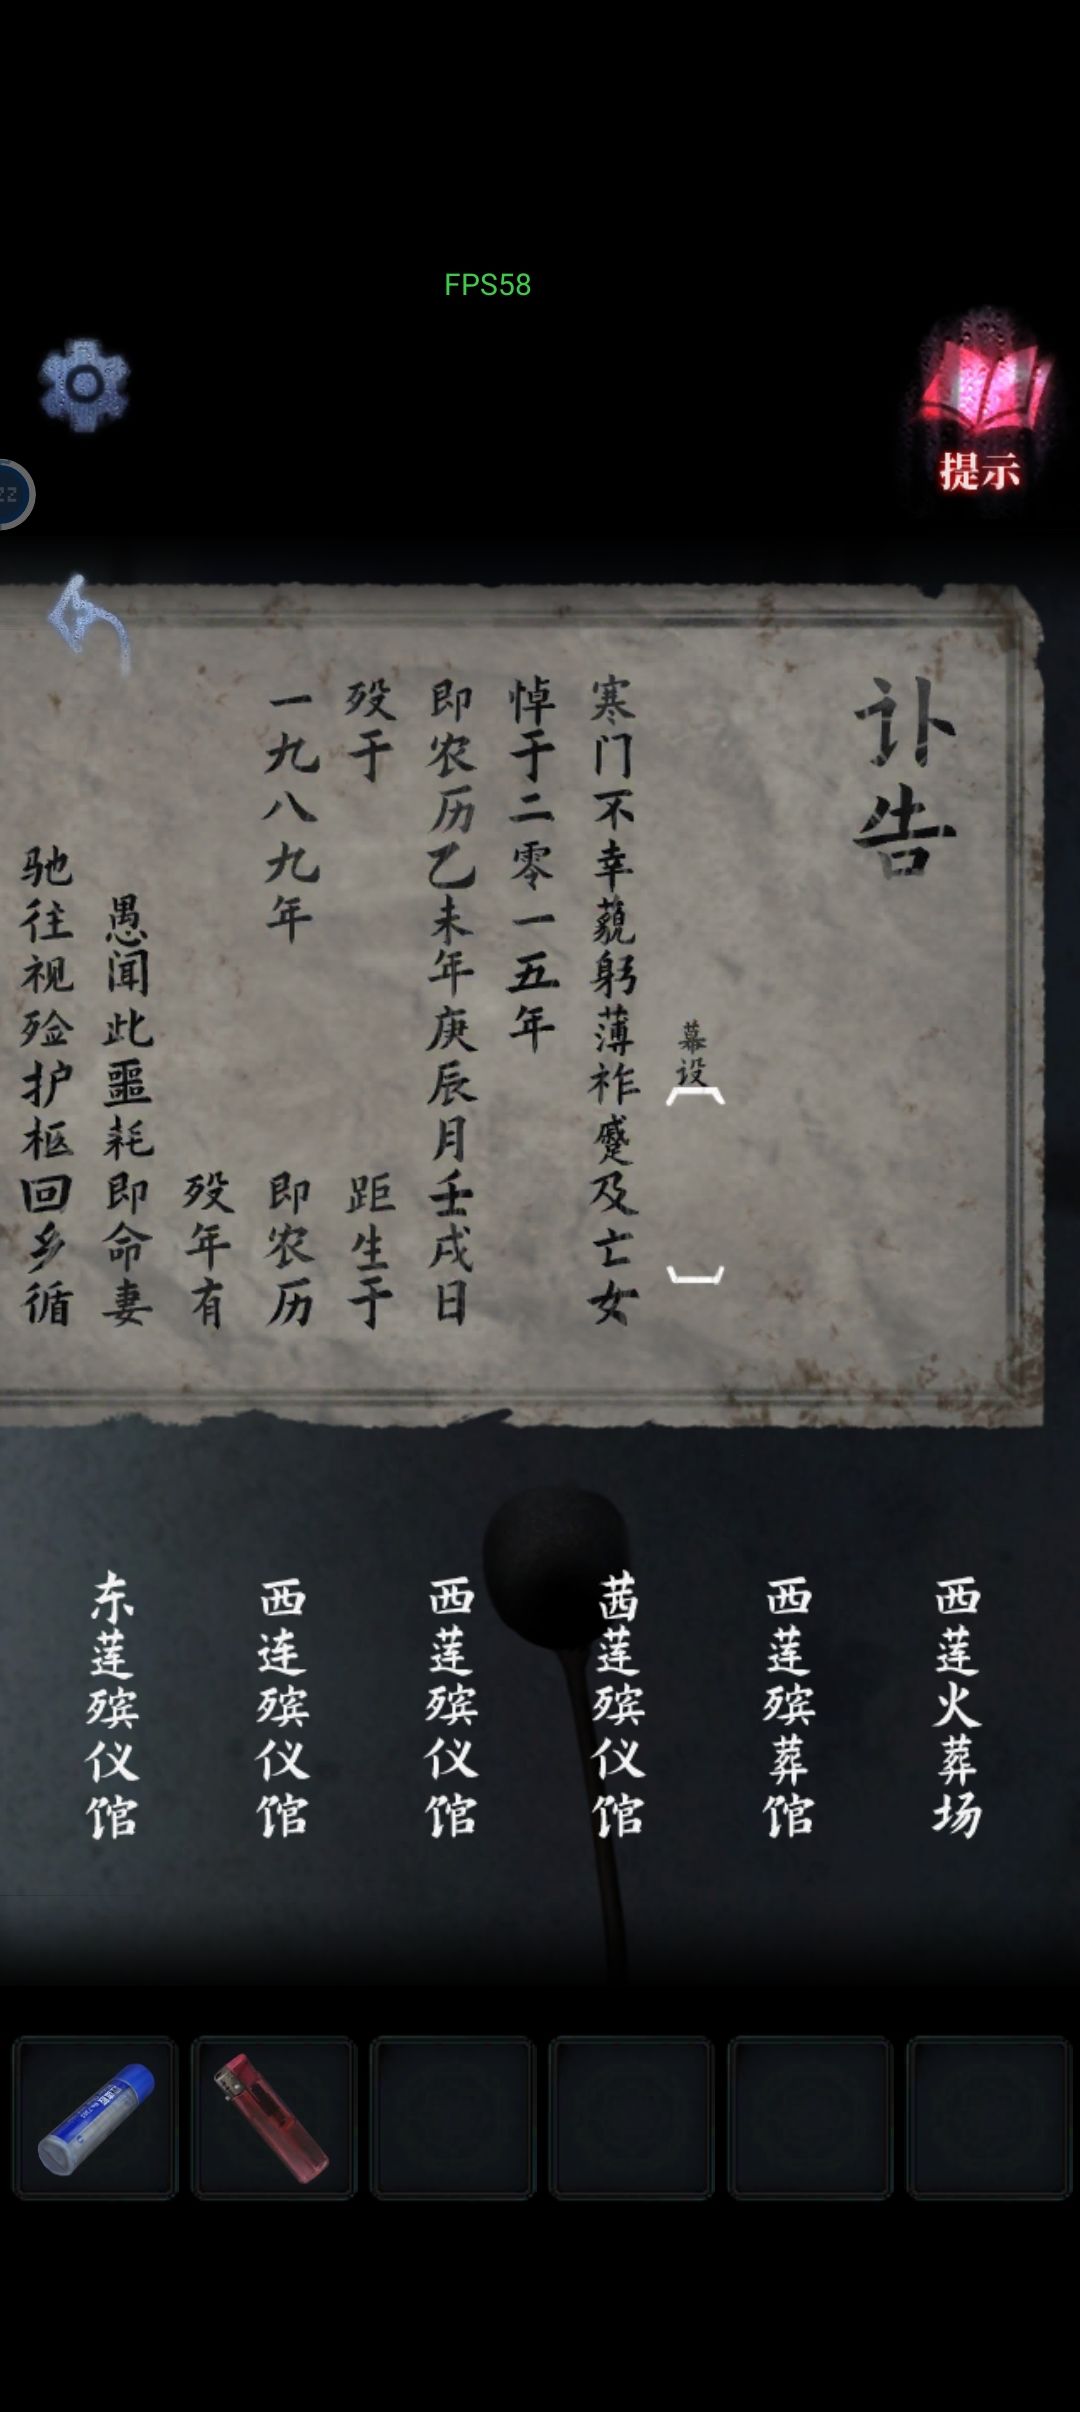 FPS58
提示
讣告
幕设
寒门不幸藐躬薄祚蹙及亡女
悼于二零一五年
即农历乙未年庚辰月壬戌日
殁于 距生于
一九八九年 即农历
殁年有
愚闻此噩耗即命妻
驰往视殓护柩回乡循
西莲火葬场
西莲殡葬馆
茜莲殡仪馆
西莲殡仪馆
西连殡仪馆
东莲殡仪馆